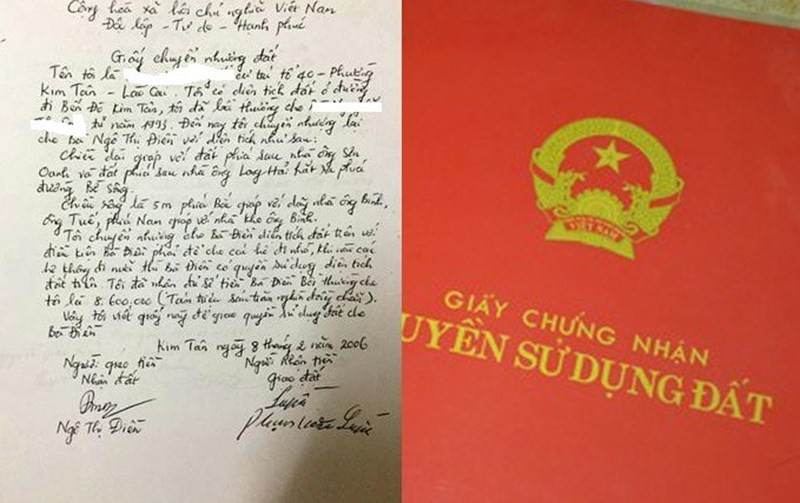 Cộng hoà xã hội chủ nghĩa Việt Nam
Độc lập - Tự do - Hạnh phúc
Giấy chuyển nhượng đất
Tên tôi là cư trú tổ 40 - Phường
Kim Tân - Lào Cai. Tôi có diện tích đất ở đường
đi Bến Đò Kim Tân, tôi đã bồi thường cho
từ năm 1993. Đến nay tôi chuyển nhượng lại
cho Bà Ngô Thị Điền với diện tích như sau:
Chiều dài giáp với đất phía sau nhà ông Sơn
Oanh và đất phía sau nhà ông Long Hải hất ra phía
đường Bờ Sông.
Chiều rộng là 5m phía Bắc giáp với dãy nhà ông Bình,
ông Tuế, phía Nam giáp với nhà kho ông Bình.
Tôi chuyển nhượng cho Bà Điền diện tích đất trên với
điều kiện Bà Điền phải để cho các hộ đi nhờ, khi nào các
hộ không đi nữa thì Bà Điền có quyền sử dụng diện tích
đất trên. Tôi đã nhận đủ số tiền Bà Điền Bồi thường cho
tôi là 8.600.000 (Tám triệu sáu trăm nghìn đồng chẵn).
Vậy tôi viết giấy này để giao quyền sử dụng đất cho
Bà Điền
Kim Tân ngày 8 tháng 2 năm 2006
Người giao tiền Người nhận tiền
Nhận đất Giao đất
Ngô Thị Điền
VIỆT NAM
GIẤY CHỨNG NHẬN
UYỀN SỬ DỤNG ĐẤT